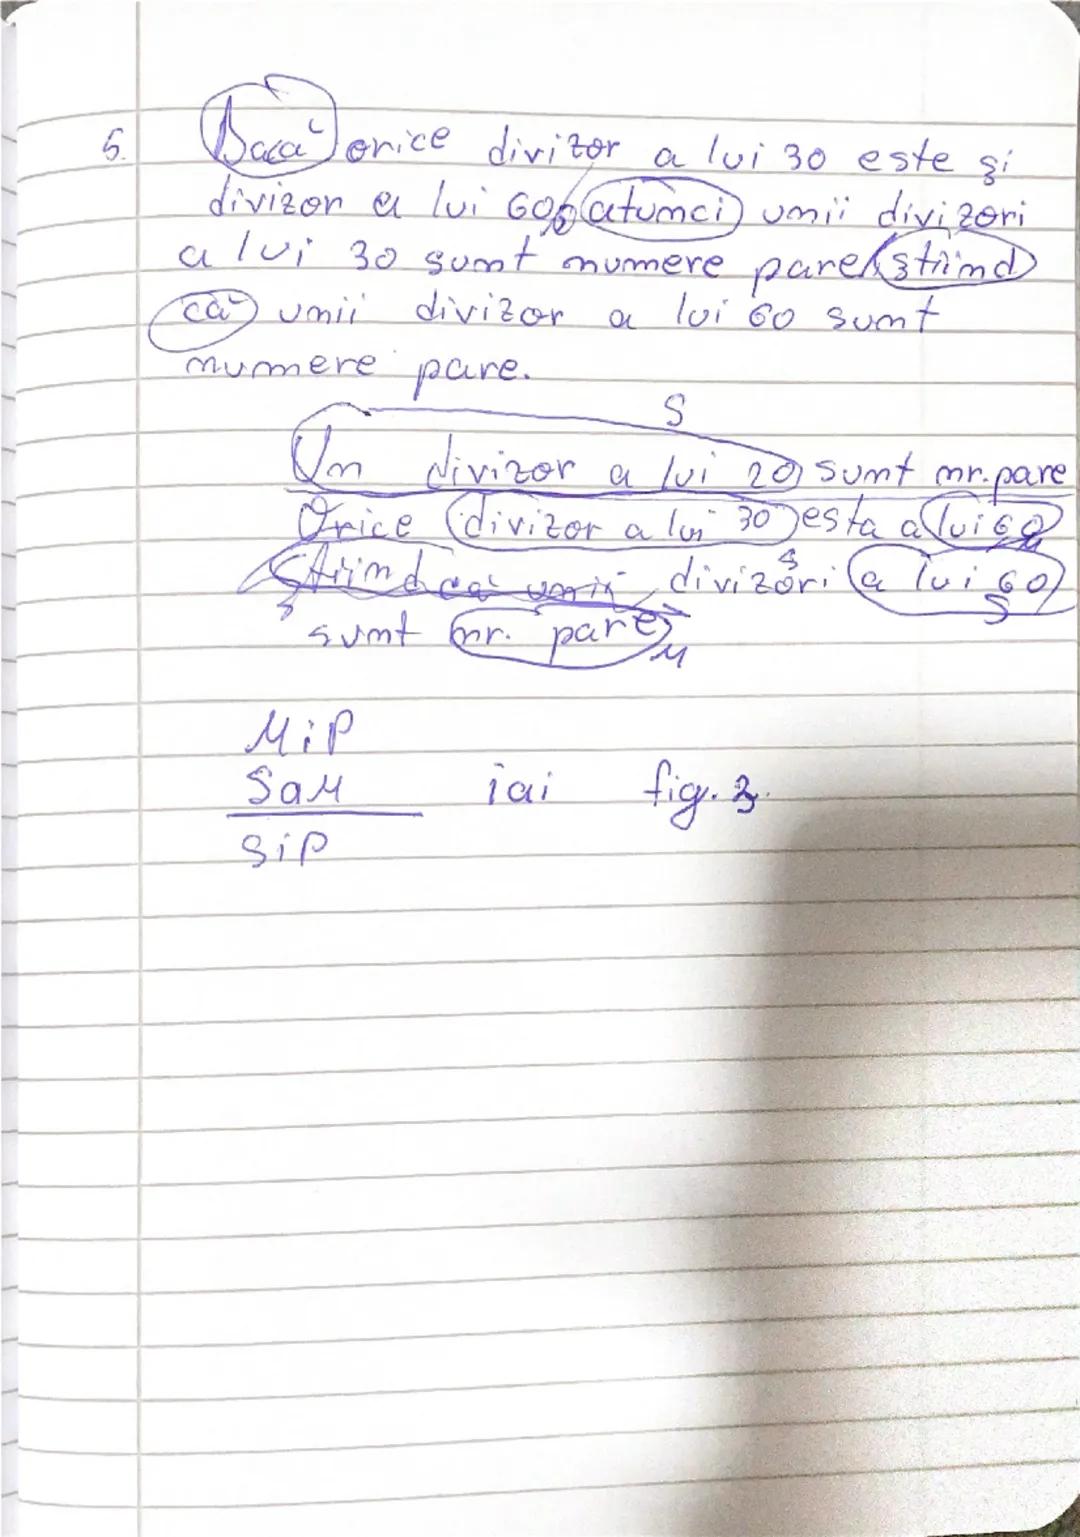 5. Dacă orice divizor a lui 30 este și
divizor a lui 60, atunci unii divizori
a lui 30 sunt numere pare știind
că unii divizor a lui 60 sunt
numere pare.
S
Un divizor a lui 20 sunt nr. pare
Orice divizor a lui 30 esta a lui 60
Știind că unii divizori a lui 60
S
sunt nr. pare
M
MiP
SaM iai fig. 3.
SiP